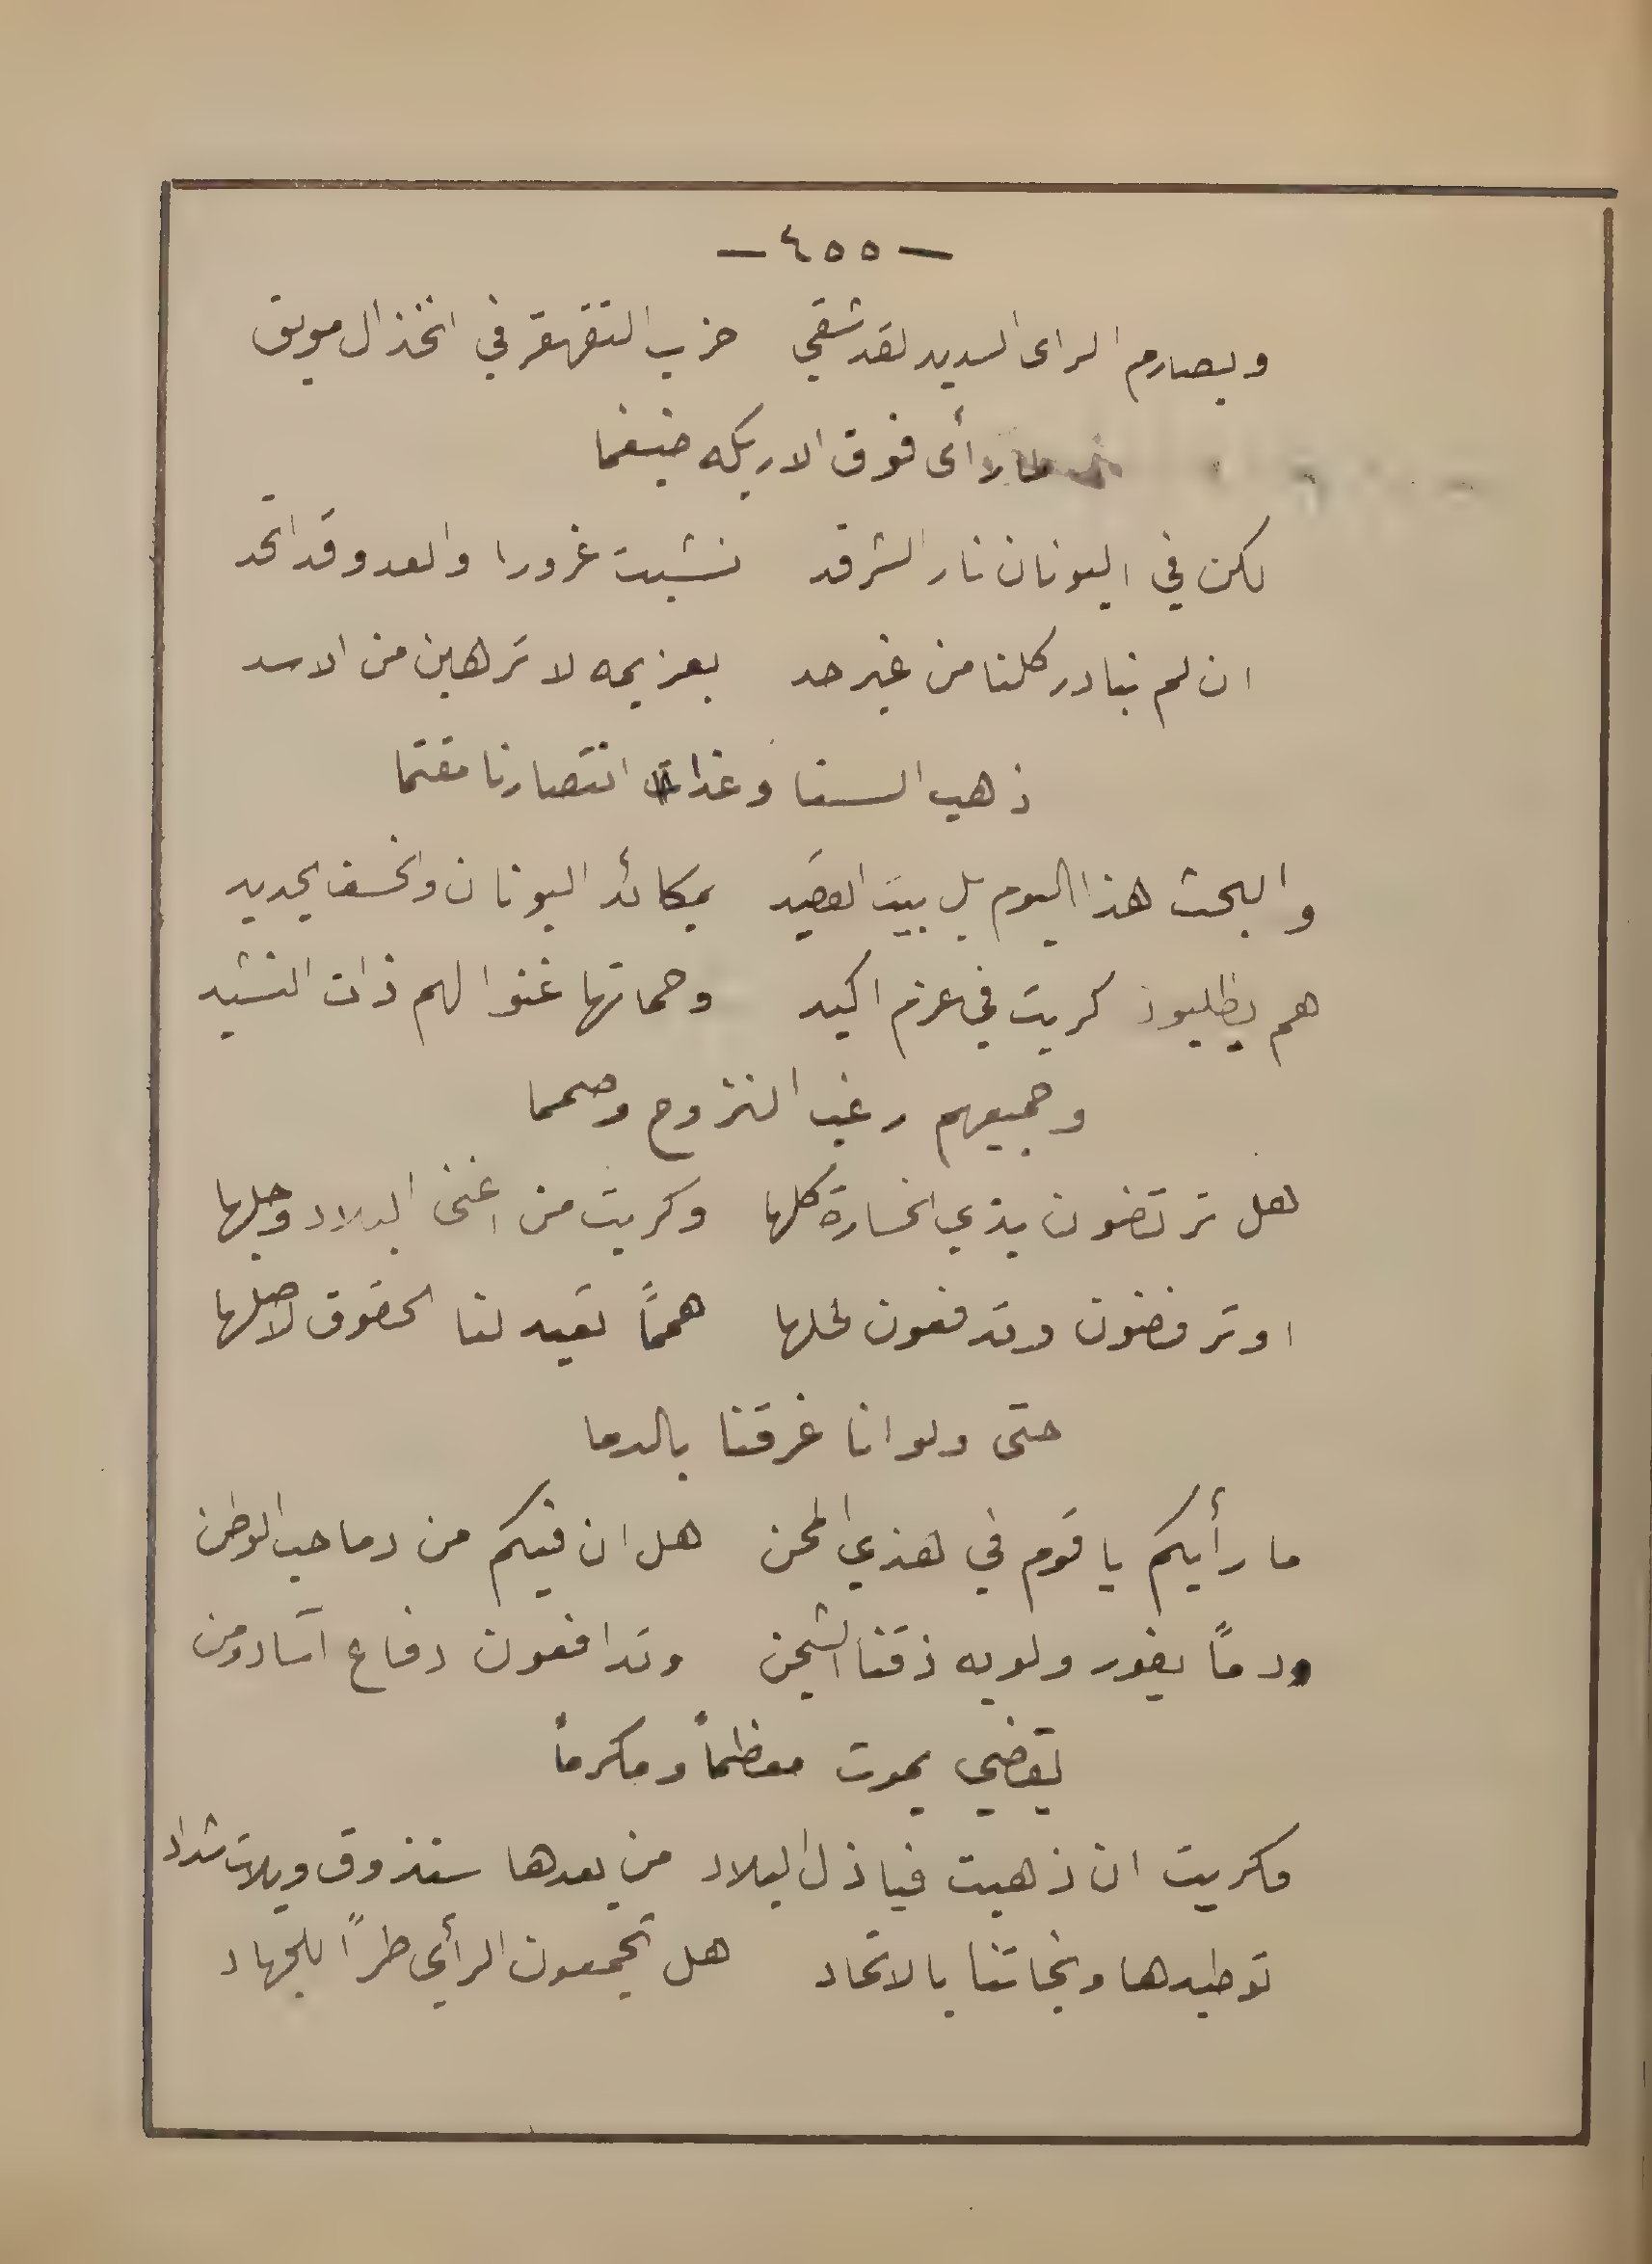 — ٤٥٥ —
وبصارم الراى السديد لقد شقي حزب التقهقر في انخذال موبق
لما رأى فوق الاريكه ضيغما
لكن في اليونان نار الشر قد نشبت غرورا والعدو قد اتحد
ان لم نبادر كلنا من غير حد بعزيمه لا ترهبن من الاسد
ذهب السنا وغدا انتصارنا مقتما
والبحث هذا اليوم بل بيت القصيد بمكائد اليونان والخسف الجديد
هم يطلبون كريت في عزم اكيد وحماتها غنوا لهم ذات النشيد
وجميعهم رغب النزوح وصمما
هل ترتضون بذي الخسارة كلها وكريت من اغنى البلاد وجلها
او ترفضون وتدفعون لحلها همماً تعيد لنا الحقوق لاصلها
حتى ولو انا غرقنا بالدما
ما رأيكم يا قوم في هذي المحن هل ان فيكم من دما حب الوطن
ودماً يفور ولو به ذقنا الشجن وتدافعون دفاع آساد ومن
يقضي يموت معظماً ومكرماً
فكريت ان ذهبت فيا ذل البلاد من بعدها سنذوق ويلات شداد
توطيدها ونجاتنا بالاتحاد هل تجمعون الرأي طراً للجهاد